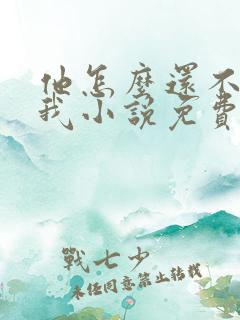 他怎麼還不
我小說免費
戰七少
未经同意禁止转载